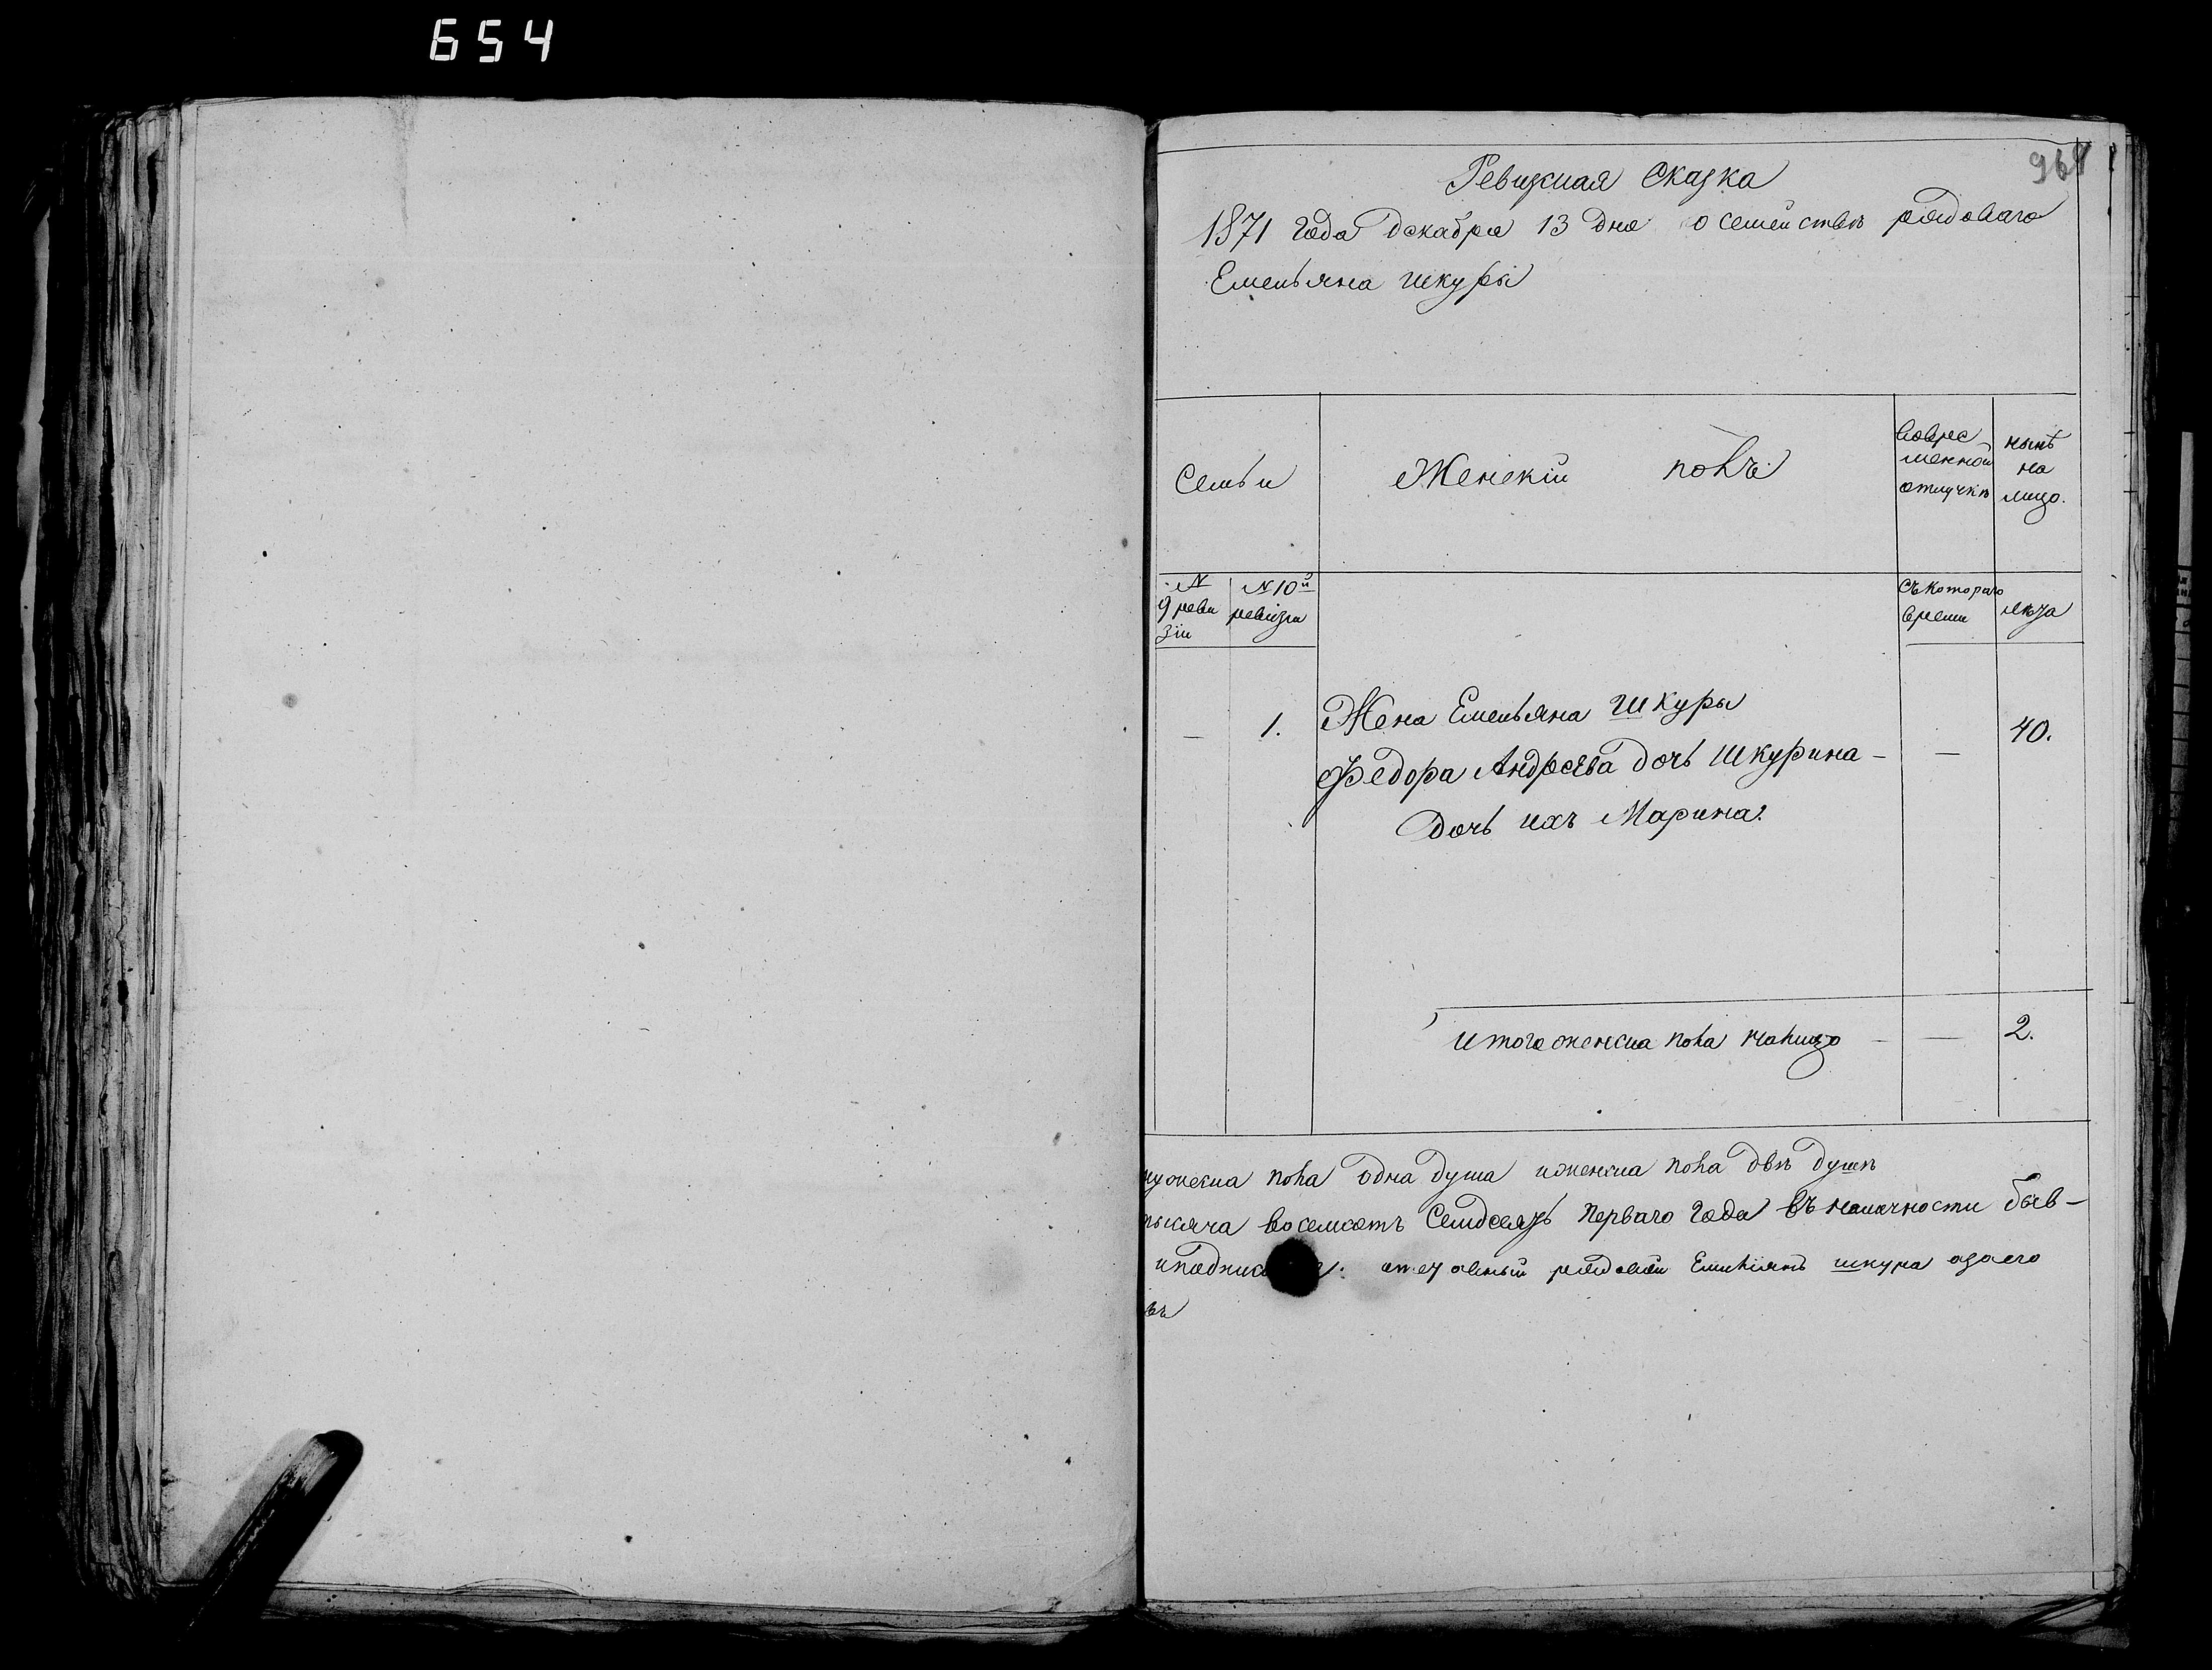 654
968
Ревизская Сказка
1871 года декабря 13 дня о семействѣ рядоваго
Емельяна шкуры
Семьи
Женский полъ
вовре-
менной
отлучкѣ
нынѣ
на
лицо.
№
9 реви
зіи
№ 10й
ревизіи
съ котораго
время
лѣта
— 1. Жена Емельяна Шкуры — 40.
Федора Андреева дочь Шкурина —
дочь ихъ Марина.
итого женска пола налицо — — 2.
мужеска пола одна душа и женска пола двѣ душѣ
тысяча восемсотъ Семдсять перваго года въ наличности быв-
рядовой Емильянъ шкура азаего